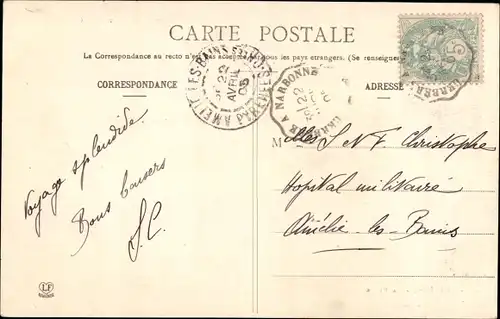 CARTE POSTALE
La Correspondance au recto n'est pas acceptée par tous les pays étrangers. (Se renseigner
CORRESPONDANCE
ADRESSE
AMELIE-LES-BAINS
22
AVRIL
05
A NARBONNE
22
05
Voyage splendide.
Bons baisers
S.C.
Melles S N F Christophe
Hopital militaire
Amélie-les-Bains
LF